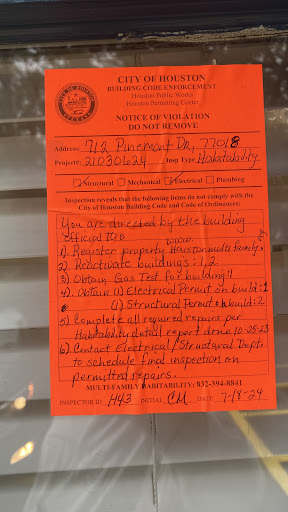 CITY OF HOUSTON
BUILDING CODE ENFORCEMENT
Houston Public Works
Houston Permitting Center
NOTICE OF VIOLATION
DO NOT REMOVE
Address: 712 Pinemont Dr, 77018
Project#: 21030624 Insp Type: Habitability
Structural Mechanical Electrical Plumbing
Inspection reveals that the following items do not comply with the
City of Houston Building Code and Code of Ordinances:
You are directed by the building
official TO:
www.
1). Register property Houstonmultifamily.org
2). Reactivate buildings: 1, 2
3). Obtain Gas Test for building: 1
4). Obtain (1) Electrical Permit on build: 1
(1) Structural Permit on build: 2
5) Complete all required repairs per
Habitability detail report done 10-25-23
6). Contact Electrical / Structural Dept.
to schedule final inspection on
permitted repairs.
MULTI-FAMILY HABITABILITY: 832-394-8841
INSPECTOR ID H43 INITIAL CM DATE 7-18-24